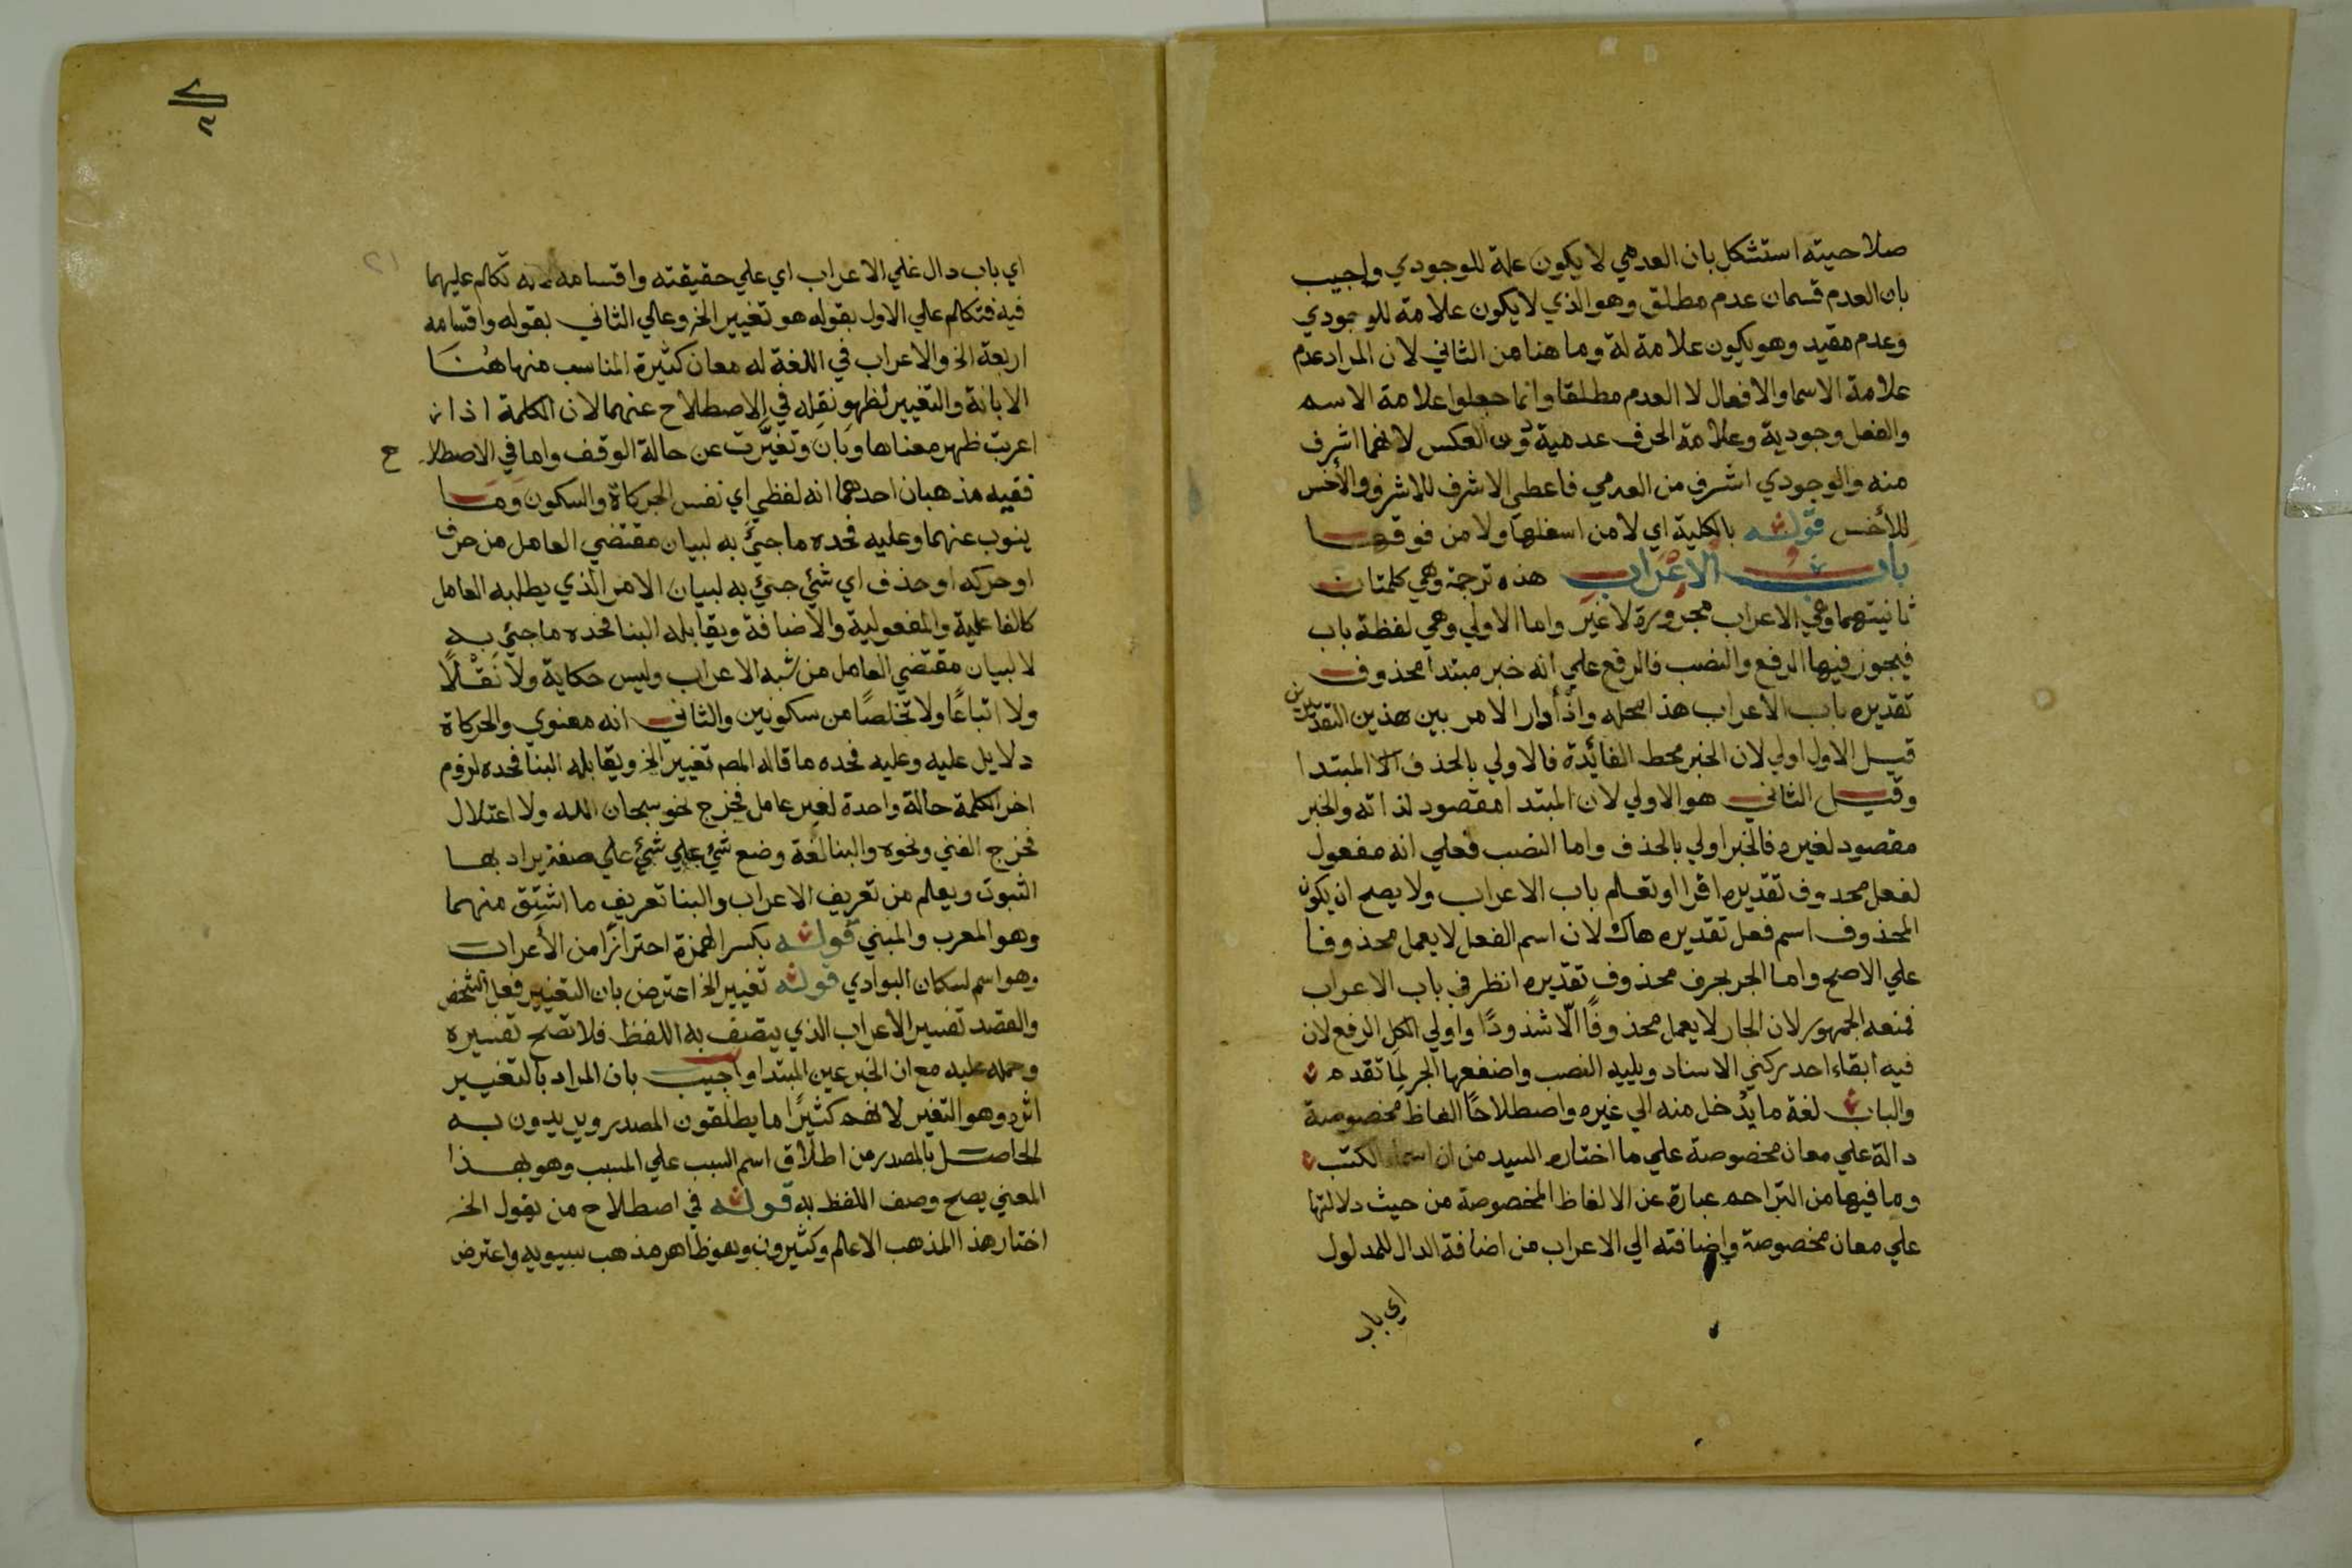 صلاحيته استشكل بان العدمي لا يكون علة للوجودي واجيب
بان العدم قسمان عدم مطلق وهو الذي لا يكون علامة للوجودي
وعدم مقيد وهو يكون علامة له وما هنا من الثاني لان المراد عدم
علامة الاسما والافعال لا العدم مطلقا وانما جعلوا علامة الاسم
والفعل وجودية وعلامة الحرف عدمية دون العكس لانهما اشرف
منه والوجودي اشرف من العدمي فاعطي الاشرف للاشرف والأخس
للأخس قوله بالكلية اي لا من اسفلها ولا من فوقها
باب الاعراب هذه ترجمة وهي كلمتان
ثانيتهما وهي الاعراب مجرورة لا غير واما الاولي وهي لفظة باب
فيجوز فيها الرفع والنصب فالرفع علي انه خبر مبتدا محذوف
تقديره باب الأعراب هذا محله واذا دار الامر بين هذين التقديرين
قيل الاول اولي لان الخبر محط الفائدة فالاولي بالحذف المبتدا
وقيل الثاني هو الاولي لان المبتدا مقصود لذاته والخبر
مقصود لغيره فالخبر اولي بالحذف واما النصب فعلي انه مفعول
لفعل محذوف تقديره اقرا او تعلم باب الاعراب ولا يصح ان يكون
المحذوف اسم فعل تقديره هاك لان اسم الفعل لا يعمل محذوفا
علي الاصح واما الجر بحرف محذوف تقديره انظر في باب الاعراب
فمنعه الجمهور لان الجار لا يعمل محذوفًا الّا شذودًا واولي الكل الرفع لان
فيه ابقاء احد ركني الاسناد ويليه النصب واضعفها الجر لِما تقدم
والباب لغة ما يدُخل منه الي غيره واصطلاحًا الفاظ مخصوصة
دالة علي معان مخصوصة علي ما اختاره السيد من ان اسماء الكتب
وما فيها من التراجم عبارة عن الالفاظ المخصوصة من حيث دلالتها
علي معان مخصوصة واضافته الي الاعراب من اضافة الدال للمدلول
اي باب
اي باب دال علي الاعراب اي علي حقيقته واقسامه لانه تكالم عليهما
فيه فتكالم علي الاول بقوله هو تغيير الخ وعالي الثاني بقوله واقسامه
اربعة الخ والاعراب في اللغة له معان كثيرة المناسب منها هُنَا
الابانة والتغيير لظهور نقله في الاصطلاح عنهما لان الكلمة اذا
اعربت ظهر معناها وبَانَ وتغيَّرت عن حالة الوقف واما في الاصطلاح
ففيه مذهبان احدهما انه لفظي اي نفس الحركاة والسكون وما
ينوب عنهما وعليه فحده ما جيَ به لبيان مقتضي العامل من حرف
او حركه او حذف اي شئ جئ به لبيان الامر الذي يطلبه العامل
كالفاعلية والمفعولية والاضافة ويقابله البنا فحده ما جئ به
لا لبيان مقتضي العامل من شبه الاعراب وليس حكاية ولا نَقْلًا
ولا اتباعًا ولا تخلصًا من سكونين والثاني انه معنوي والحركاة
دلايل عليه وعليه فحده ما قاله المص تغيير الخ ويقابله البنا فحده لزوم
اخر الكلمة حالة واحدة لغير عامل فخرج نحو سبحان الله ولا اعتلال
فخرج الفتي ونحوه والبنا لغة وضع شئ علي شئ علي صفة يراد بها
الثبوت ويعلم من تعريف الاعراب والبنا تعريف ما اشتق منهما
وهو المعرب والمبني قوله بكسر الهمزة احترازًا من الأعراب
وهو اسم لسكان البوادي قوله تغيير الخ اعترض بان التغيير فعل الشخص
والقصد تفسير الاعراب الذي يتصف به اللفظ فلا تصح تفسيره
وحمله عليه مع ان الخبر عين المبتدا واجيب بان المراد بالتغيير
اثره وهو التغير لانهم كثيرًا ما يطلقون المصدر ويريدون به
الحاصل بالمصدر من اطلاق اسم السبب علي المسبب وهو بهذا
المعني يصح وصف اللفظ به قوله في اصطلاح من يقول الخ
اختار هذا المذهب الاعلم وكثيرون وهو ظاهر مذهب سيبويه واعترض